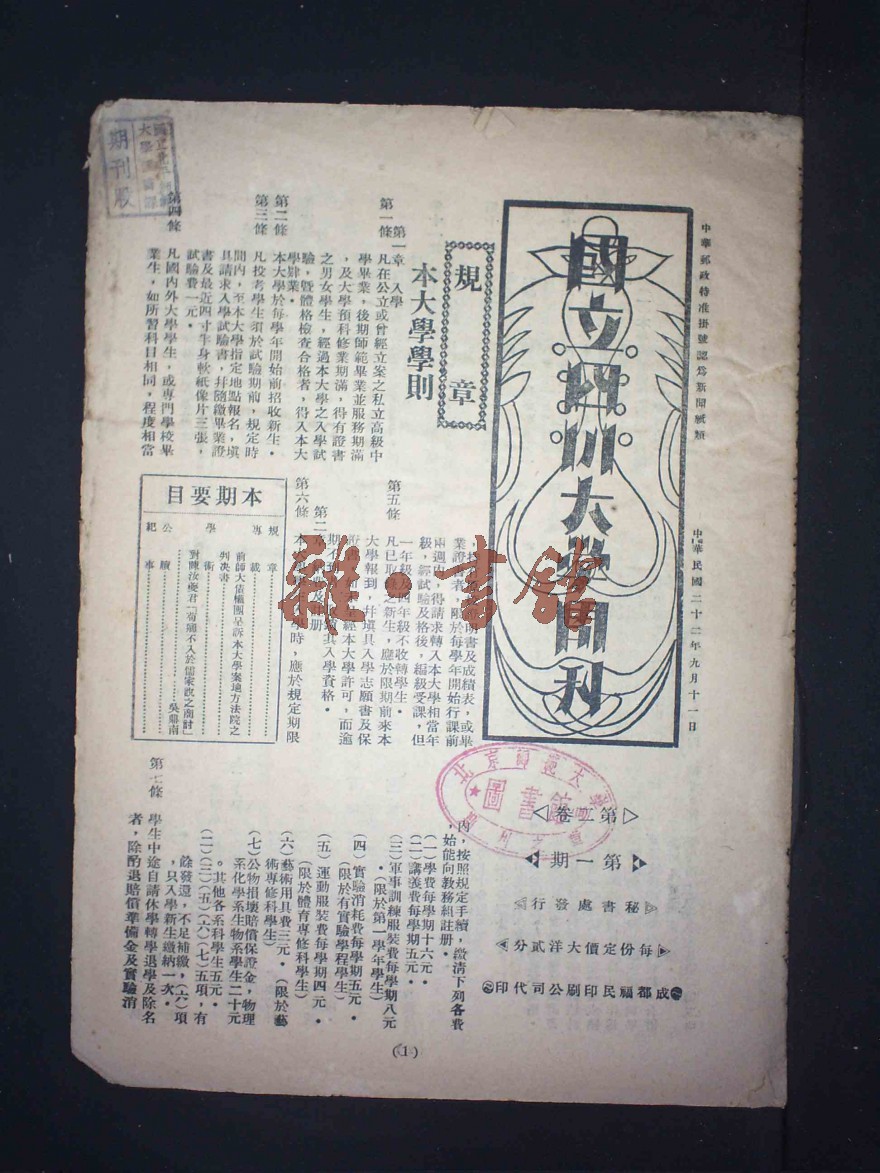 中華郵政特准掛號認爲新聞紙類
中華民國二十二年九月十一日
國立四川大學周刊
第二卷
第一期
秘書處發行
每份定價大洋貳分
成都福民印刷公司代印
規章
本大學學則
第一章 入學
第一條 凡在公立或曾經立案之私立高級中
學畢業，後期師範畢業並服務期滿
，及大學預科修業期滿，得有證書
之男女學生，經過本大學之入學試
驗，曁體格檢查合格者，得入本大
學肄業。
第二條 本大學於每學年開始前招收新生。
第三條 凡投考學生須於試驗期前，規定時
間內，至本大學指定地點報名，填
具請求入學試驗書，幷隨繳畢業證
書及最近四寸半身軟紙像片三張，
試驗費一元。
第四條 凡國內外大學學生，或專門學校畢
業生，如所習科目相同，程度相當
明書及成績表，或畢
業證書者，限於每學年開始行課前
兩週內，得請求轉入本大學相當年
級，經試驗及格後，編級受課，但
一年級及四年級不收轉學生。
第五條 凡已取錄之新生，應於限期前來本
大學報到，幷填具入學志願書及保
經本大學許可，而逾
期不
其入學資格。
第二
冊
第六條 本
學時，應於規定期限
內，按照規定手續，繳清下列各費
，始能向教務組註冊。
(一)學費每學期十六元。
(二)講義費每學期五元。
(三)軍事訓練服裝費每學期八元
。(限於第一學年學生)
(四)實驗消耗費每學期五元。
(限於有實驗學程學生)
(五)運動服裝費每學期四元。
(限於體育專修科學生)
(六)藝術用具費三元。(限於藝
術專修科學生)
(七)公物損壞賠償保證金，物理
系化學系生物系學生二十元
。其他各系科學生五元。
(二)(三)(五)(六)(七)五項，有
餘發還，不足補繳，(六)項
，只入學新生繳納一次。
第七條 學生中途自請休學轉學退學及除名
者，除酌退賠償準備金及實驗消
本期要目
規章
專載
前師大債權團呈訴本大學案地方法院之
判决書
學術
對陳汝夔君「荀關不入於儒家說之商討」
吳鼎南
公牘
紀事
期刊股
北京師範大學
圖書館
雜·書館
(1)